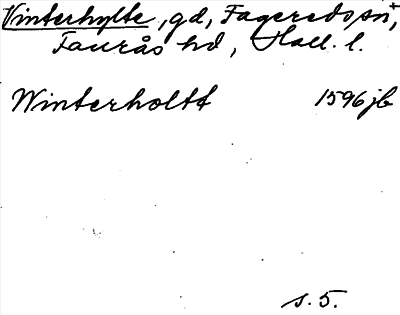 Vinterhylte, gd, Fagereds sn,+
Faurås hd, Hall. l.
Winterholtt 1596 jb
s. 5.